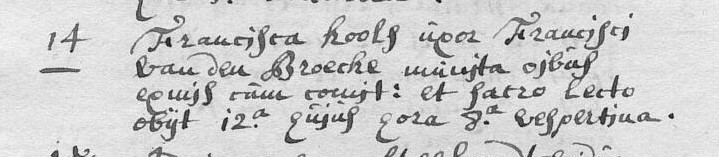 14 Francisca kools uxor Francisci
van den Broecke munita oibus
exuijs cum comit: et sacro lecto
obijt 12.a hujus hora 8.a vespertina.